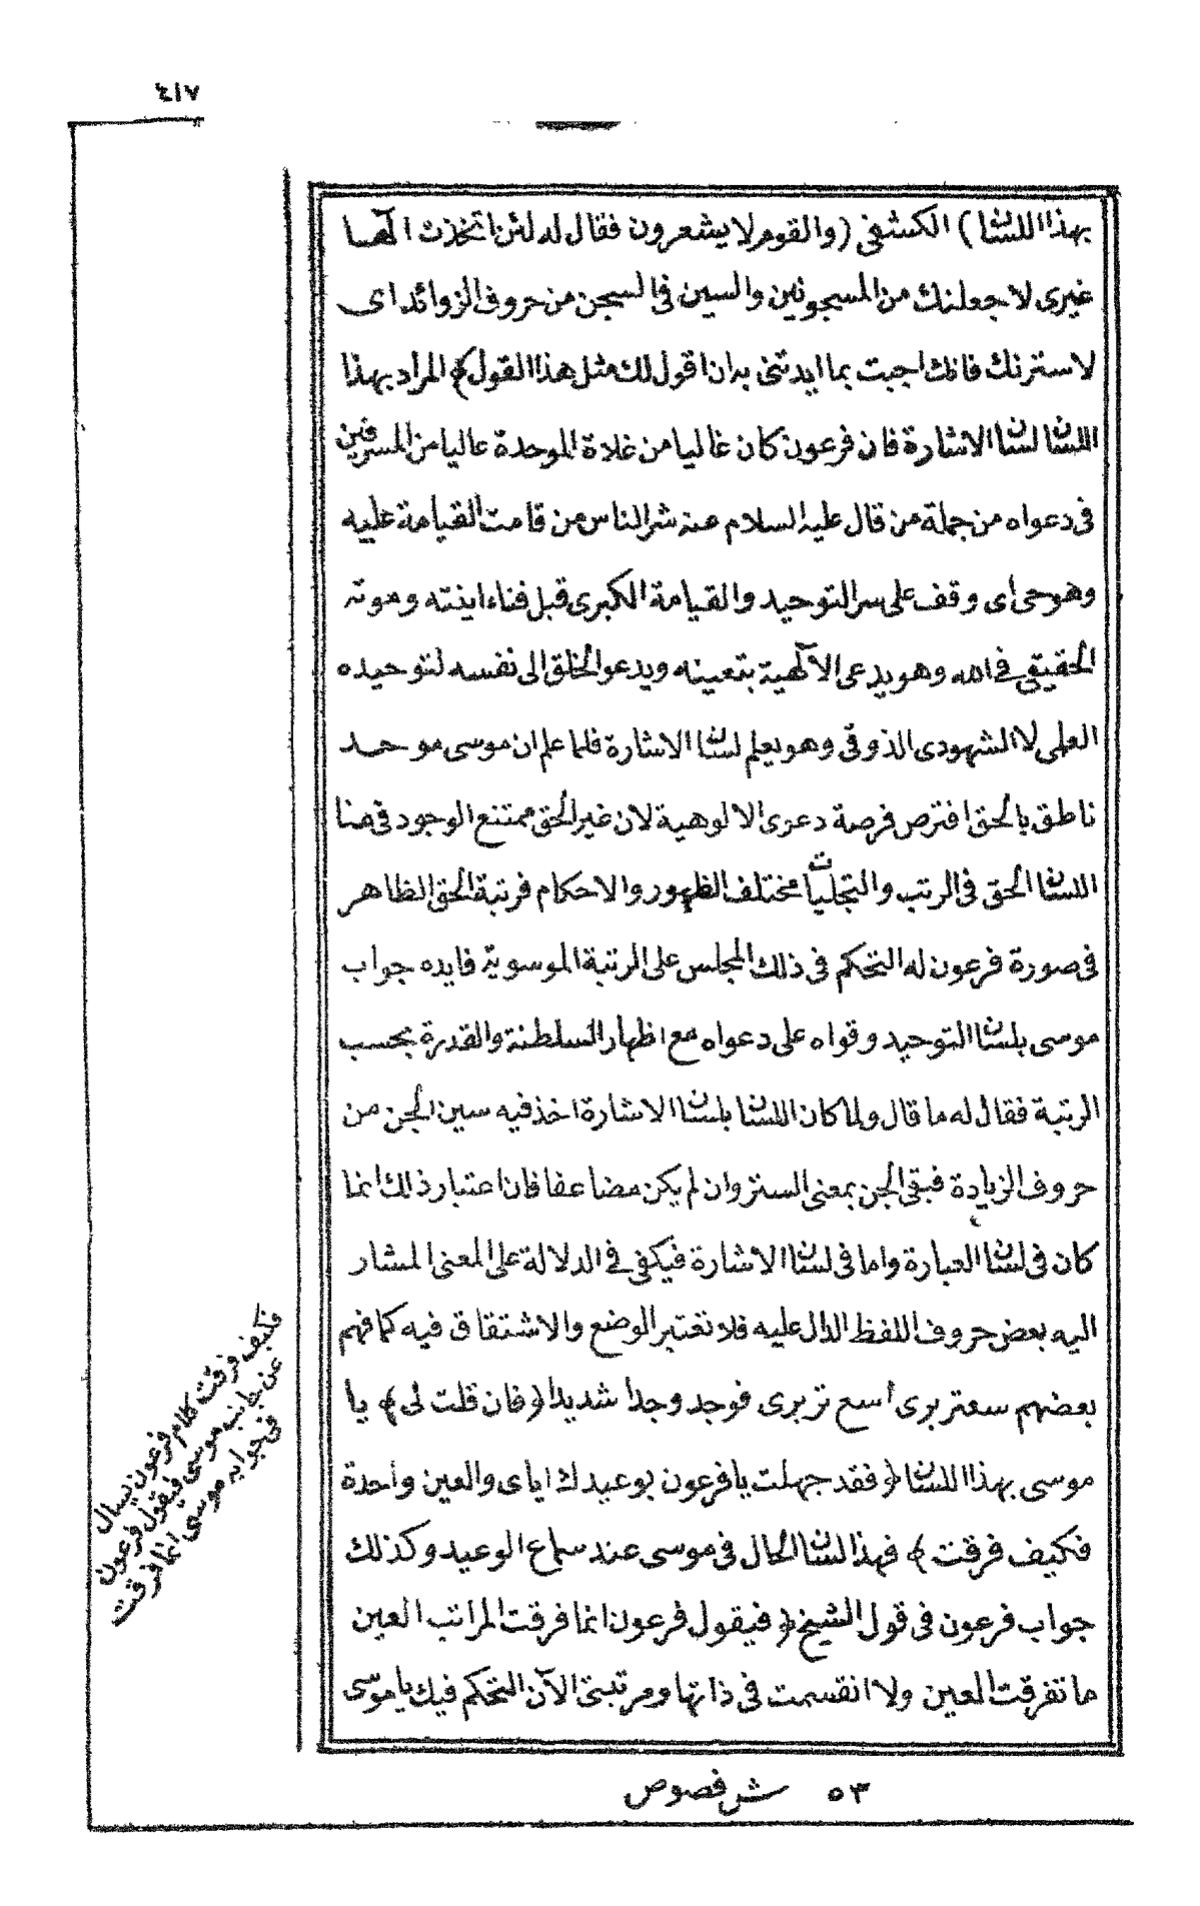 ٤١٧
بهذا اللسان) الكشفى (والقوم لا يشعرون فقال له لئن اتخذت الٓهــا
غيرى لاجعلنك من المسجونين والسين فى السجن من حروف الزوائد اى
لاسترنك فانك اجبت بما ايدتنى به ان اقول لك مثل هذا القول) المراد بهذا
اللسان لسان الاشارة فان فرعون كان غاليا من غلاة الموحدة عاليا من المسرفين
فى دعواه من جملة من قال عليه السلام عنه شر الناس من قامت القيامة عليه
وهو حى اى وقف على سر التوحيد والقيامة الكبرى قبل فناء اينته وموته
الحقيقى فى الله وهو يدعى الآلهية بتعينه ويدعو الخلق الى نفسه لتوحيده
العلمى لا الشهودى الذوقى وهو يعلم لسان الاشارة فلما علم ان موسى موحـد
ناطق بالحق افترص فرصة دعوى الالوهية لان غير الحق ممتنع الوجود فى هذا
اللسان الحق فى الرتب والتجليات مختلف الظهور والاحكام فرتبة الحق الظاهر
فى صورة فرعون له التحكم فى ذلك المجلس على الرتبة الموسوية فايده جواب
موسى بلسان التوحيد وقواه على دعواه مع اظهار السلطنة والقدرة بحسب
الرتبة فقال له ما قال ولما كان اللسان بلسان الاشارة اخذ فيه سين الجن من
حروف الزيادة فبقى الجن بمعنى الستر وان لم يكن مضاعفا فان اعتبار ذلك انما
كان فى لسان العبارة واما فى لسان الاشارة فيكفى فى الدلالة على المعنى المشار
اليه بعض حروف اللفظ الدال عليه فلا تعتبر الوضع والاشتقاق فيه كما فهم
بعضهم سعتر برى اسع تر برى فوجد وجدا شديدا (فان قلت لى) يا
موسى بهذا اللسان (فقد جهلت يا فرعون بوعيدك اياى والعين واحدة
فكيف فرقت) فهذا لسان الحال فى موسى عند سماع الوعيد وكذلك
جواب فرعون فى قول الشيخ (فيقول فرعون انما فرقت المراتب العين
ما تفرقت العين ولا انقسمت فى ذاتها ومرتبتى الآن التحكم فيك يا موسى
فكيف فرقت كلام فرعون يسال
عن جانب موسى فيقول فرعون
فى جوابه موسى انما فرقت
٥٣ ش فصوص